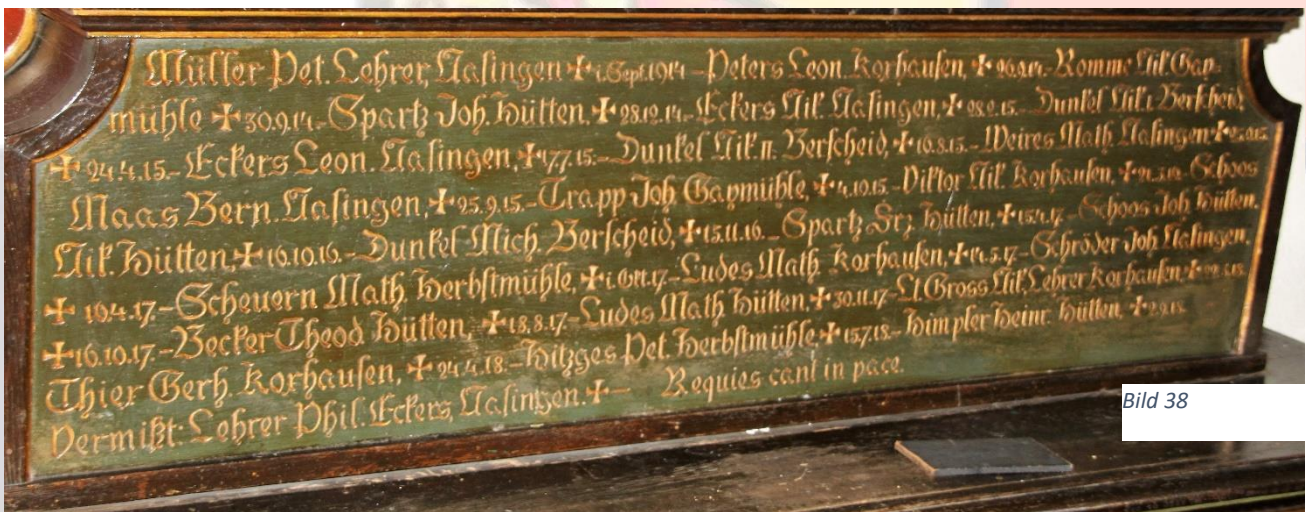 Müller Pet. Lehrer, Nasingen + 1. Sept. 1914 – Peters Leon. Korhausen, + – Romme Nik. Gay-
mühle + 30.9.14. – Spartz Joh. Hütten, + 28.12.14. – Eckers Nik. Nasingen, + – Dunkel Nik. I. Berscheid,
+ 24.4.15. – Eckers Leon. Nasingen, + 17.7.15. – Dunkel Nik. II. Berscheid, + 10.8.15. – Weires Math. Nasingen +
Maas Bern. Nasingen, + 25.9.15. – Trapp Joh. Gaymühle, + 4.10.15. – Viktor Nik. Korhausen, + – Schoos
Nik. Hütten, + 10.10.16. – Dunkel Mich. Berscheid, + 15.11.16. – Spartz Frz. Hütten, + 15.4.17. – Schoos Joh. Hütten,
+ 19.4.17. – Scheuern Math. Herbstmühle, + – Ludes Math. Korhausen, + 14.5.17. – Schröder Joh. Nasingen,
+ 16.10.17. – Becker Theod. Hütten, + 18.8.17. – Ludes Math. Hütten, + 30.11.17. – Lt. Gross Nik. Lehrer Korhausen +
Thiex Gerh. Koxhausen, + 24.4.18. – Hitzges Pet. Herbstmühle, + 15.7.18. – Himpler Heinr. Hütten +
Vermißt: Lehrer Phil. Eckers, Nasingen. + – Requiescant in pace.
Bild 38